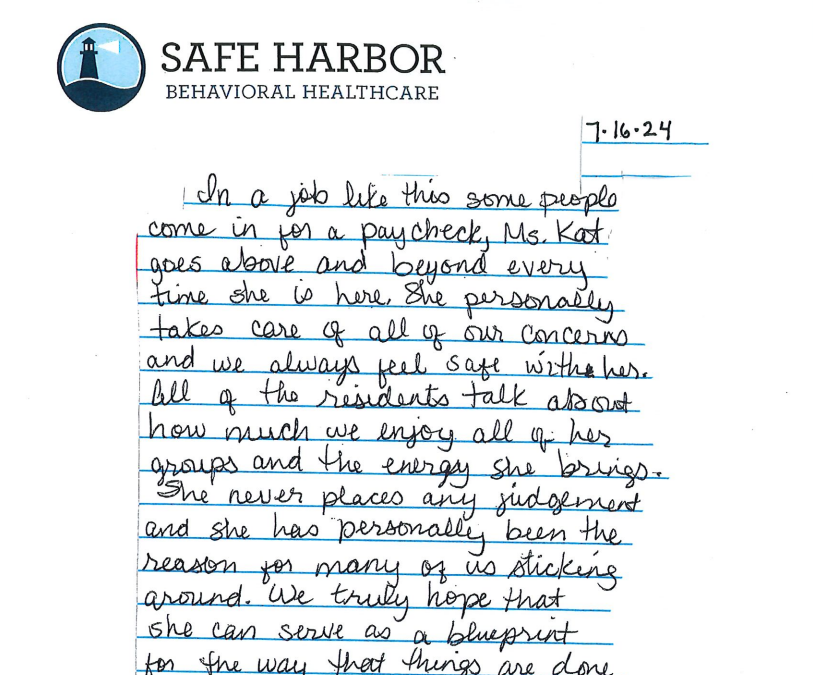 SAFE HARBOR
BEHAVIORAL HEALTHCARE
7.16.24
In a job like this some people
come in for a paycheck, Ms. Kat
goes above and beyond every
time she is here. She personally
takes care of all of our concerns
and we always feel safe with her.
All of the residents talk about
how much we enjoy all of her
groups and the energy she brings.
She never places any judgement
and she has personally been the
reason for many of us sticking
around. We truly hope that
she can serve as a blueprint
for the way that things are done